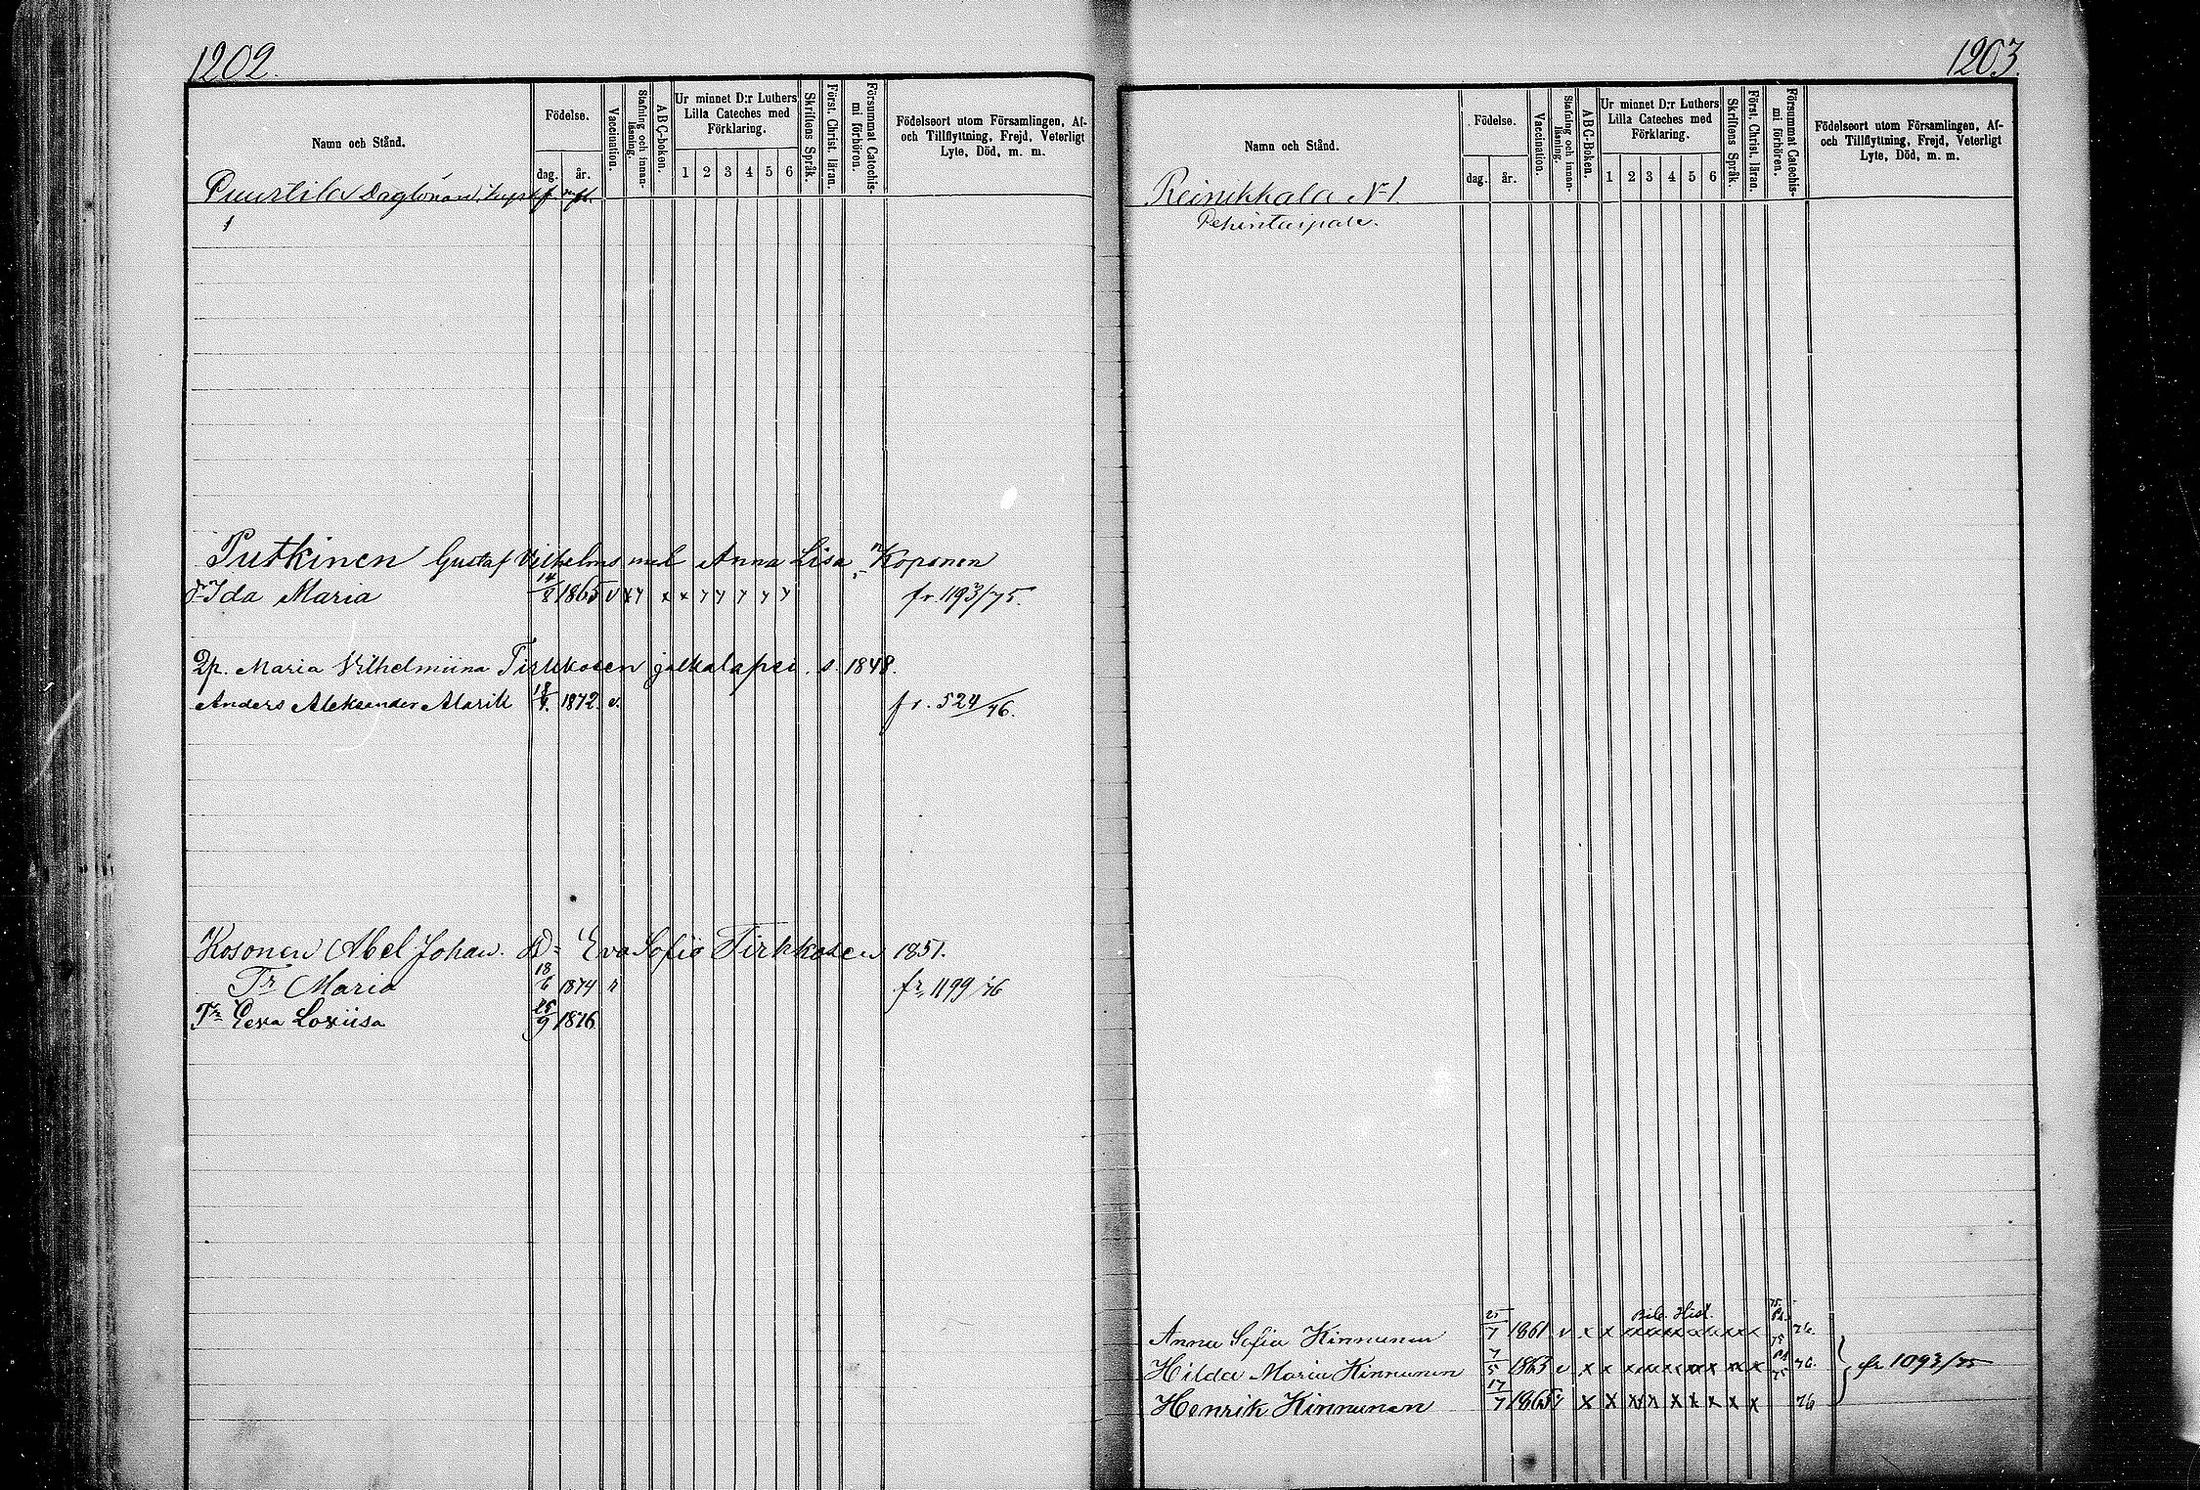 1202.
Namn och Stånd.
Födelse.
dag. år.
Vaccination.
Stafning och innan-läsning.
ABC-boken.
Ur minnet D:r Luthers Lilla Cateches med Förklaring.
1 2 3 4 5 6
Skriftens Språk.
Först. Christ. läran.
Försummat Catechis-mi förhören.
Födelseort utom Församlingen, Af- och Tillflyttning, Frejd, Veterligt Lyte, Död, m. m.
Puurtila
Putkinen Gustaf Vilhelms med Anna Lisa Koponen
Dr Ida Maria 14/8 1865 v x y x x y y y y y fr. 1193/75.
2p. Maria Vilhelmiina Tirkkosen jalkalapsi. s. 1848.
Anders Aleksander Alarik 1872. v. fr. 524/76.
Kosonen Abel Johan. Eva Sofia Tirkkosen 1851.
Tr Maria 18/6 1874 fr. 1199/76
Tr Eeva Loviisa 25/9 1876
1203.
Namn och Stånd.
Födelse.
dag. år.
Vaccination.
Stafning och innan-läsning.
ABC-Boken.
Ur minnet D:r Luthers Lilla Cateches med Förklaring.
1 2 3 4 5 6
Skriftens Språk.
Först. Christ. läran.
Försummat Catechis-mi förhören.
Födelseort utom Församlingen, Af- och Tillflyttning, Frejd, Veterligt Lyte, Död, m. m.
Reinikkala N=1.
Pekintaipale.
Bib. Hist.
Anna Sofia Kinnunen 25/7 1861 v x x x x x x x x x x 76.
Hilda Maria Kinnunen 7/5 1863 v x x x x x x x x x x 76. fr 1093/75
Henrik Kinnunen 17/7 1865 v x x x x x x x x x x 76